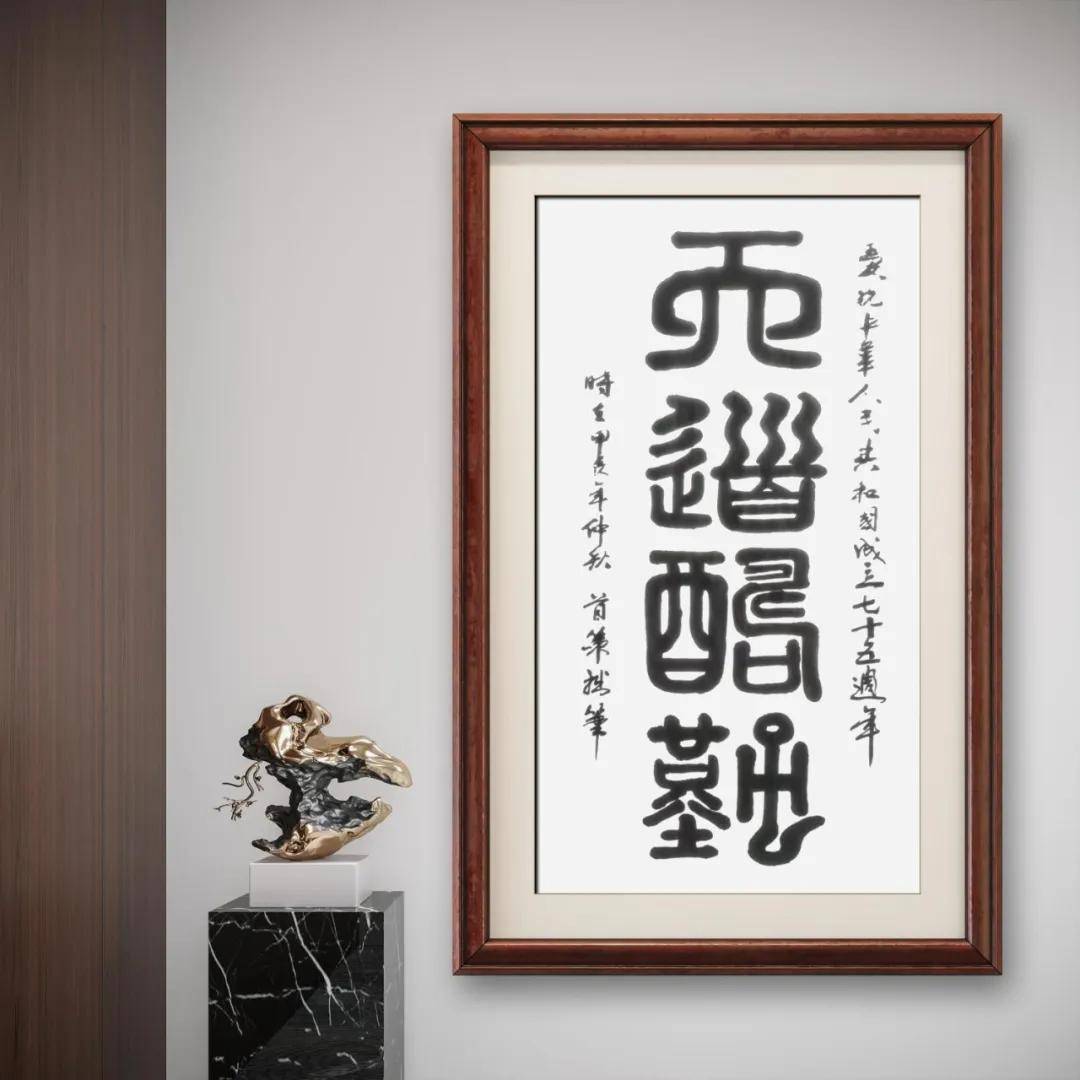 慶祝中華人民共和國成立七十五週年
天道酬勤
時在甲辰年仲秋 首策拙筆